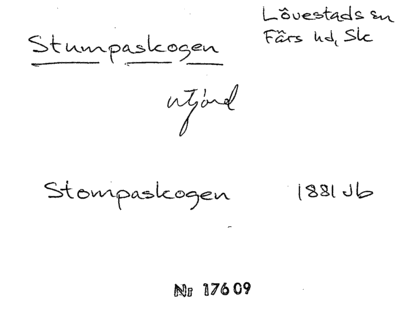 Stumpaskogen
Lövestads sn
Färs hd, Sk
utjord
Stompaskogen 1881 Jb
Nr 17609